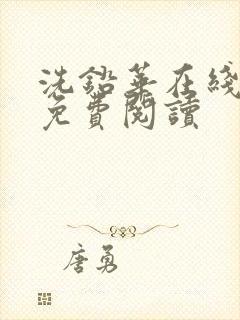 洗鉛華在綫
免費閱讀
唐勇